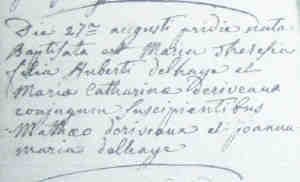 Die 27ma augusti pridie nata
Baptisata est Maria Theresia
filia Huberti delhaye et
Maria Catharina deriveaux
conjugum suscipientibus
Mathæo deriveaux et joanna
maria delhaye